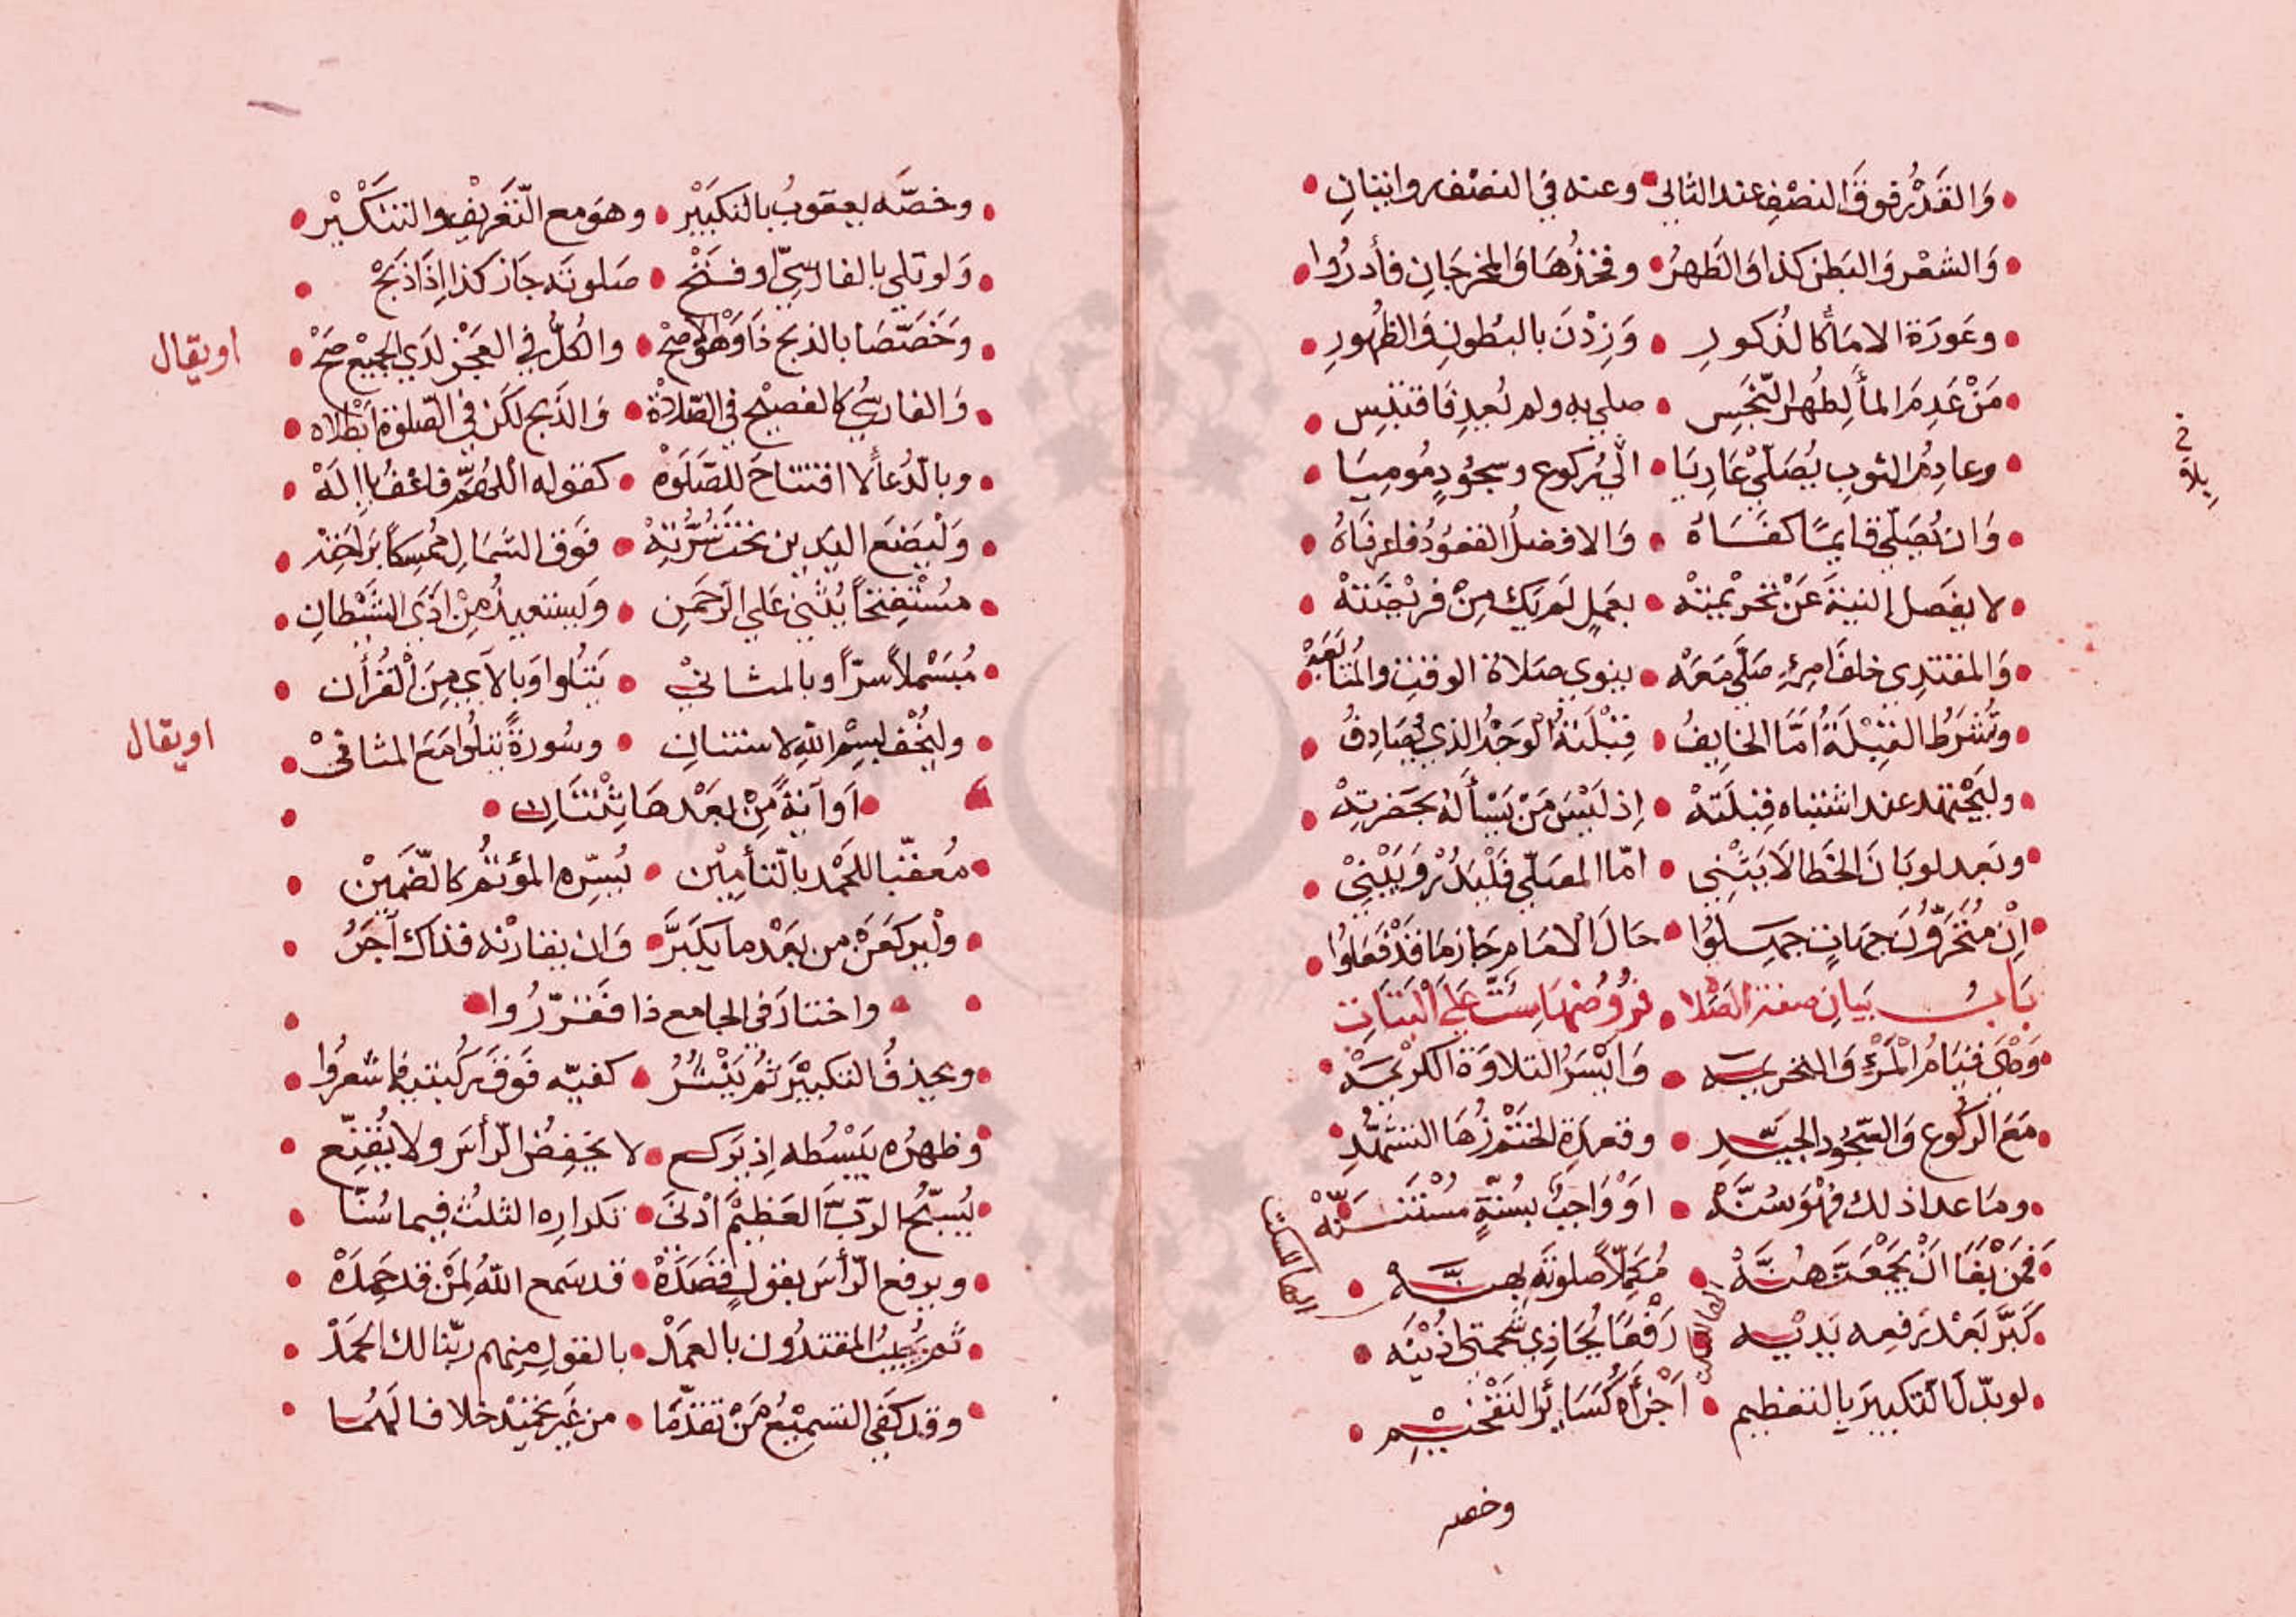 وَالقَدْرُ فوقَ النصْفِ عند الثاني • وعنه في النصْف روايتانِ
وَالشعْر وَالبَطن كذا وَالظَهرُ • وفخذُهَا وَالمخرجَانِ فأدرُوا
وعَورَة الامَاءِ كالذكورِ • وَزِدْنَ بالبُطونِ وَالظهُورِ
مَنْ عَدِمَ الماءَ لِطُهر النّجَسِ • صلي به ولم يُعِد فاقتَبِس
وعادِمُ الثوبِ يُصَلّيْ عَارِيَا • الي ركوع وسجُودٍ مُومِيَا
وَان يُصَلّي قايمًا كفَاهُ • وَالافضلُ القعُودُ فاعرفَاهُ
لا يفصَل النيةَ عَنْ تحرْيمتهْ • بعَملٍ لم يَكُ مِنْ فريْضَتهْ
وَالمقتدِي خلفَ امرِءٍ صَلّي مَعَهْ • ينوي صَلاةَ الوقتِ والمُتَابَعَهْ
وتُشرَطُ القِبْلَةُ امَّا الخايِفُ • قِبْلَتهُ الوَجْهُ الذي يُصَادِفُ
وليَجْتهد عند اشتباه قِبْلَتهْ • إذ لَيْسَ مَنْ يَسْأَلهُ بحَضرتِهْ
وبَعد لو بَانَ الخطا لَا يَثْنِي • امّا المصَلّي فَلْيَدُرْ وَيَبْنِيْ
إنْ مُتَحَرُّونَ جهَاتٍ جهِلُوا • حَالَ الامَامِ جَازَ مَا قَدْ فَعَلُوا
بَابُ بَيانِ صفة الصَّلاة • فرُوضُهَا سِتٌّ عَلَي البَتَاتِ
وَهْيَ قيَامُ المَرْءِ وَالتحريمَه • وَايْسَرُ التلاوَة الكريْمَهْ
مَعَ الركُوع وَالسّجُودِ الجيّدِ • وقعدَة الخَتْم زُهَا التشَهّدِ
ومَا عدا ذلك فهْوَ سُنَّهْ • اوْ وَاجبٌ بسُنّةٍ مُسْتَنَّهْ
فمَن يَشَا انْ يَجْمَعَهُنَّهْ • مُكَمِّلاً صلوتَه بهنَّهْ
كَبَّر بَعْد رَفعِه يَدَيْهِ • رَفْعًا يُحَاذِي شَحْمَتَي اذْنَيْه
لو بدّلَ التكبيرَ بالتعظيمِ • اجْزأَهُ كسَائر التفْخيْمِ
وخصه
وخصَّه يعقوبُ بالتكبيْرِ • وهوَ مع التّعْريْفِ والتنْكيْرْ
وَلو تلي بالفارسيّ او فتَحْ • صلوتَه جَاز كذا إذَا ذبَحْ
وَخَصَّصَا بالذبح ذَا وَهْوَ الاصحْ • والكُلُّ في العَجْز لدَي الجميْعِ صَحْ
اويقال
وَالفارسيُّ كالفصيْح في الصّلاةْ • وَالذبح لكن في الصّلوة ابْطَلاه
وبالدّعاءِ لا افتتاحَ للصّلَوةْ • كقوله اللهُمَّ فاغفُ يا إلَهْ
وَلْيَضَع اليَدين تحتَ سُرَّتِهْ • فوَق الشمَالِ مُمسِكاً برَاحَتِهْ
مُسْتفتِحًا يُثْنيْ عَلي الرّحمَنِ • وَليستعيذُ مِنْ اذَي الشّيْطانِ
مُبَسْملاً سِرّاً وبالمثانيْ • يَتلُوا وَبالآي مِنَ القُرْأن
وليُخْف بسْم الله لاستنانِ • وسُورَةً يتلُوا مَعَ المثانيْ
اويقال
اَو آيَةً مِنْ بعَدْهَا ثِنْتَانِ
مُعقّبا للحَمْد بالتأمِيْن • يُسِرّه المؤتَمُّ كالضّمِيْن
ولْيركعَن من بعَدْ ما يكبّرَ • وَان يقارنه فذاك اجدَرُ
واختارَ في الجامع ذا فقرّرُوا
ويحذفُ التكبيْرَ ثُمّ ينْشُرُ • كفيّه فَوقَ ركبتيه فاشعرُوا
وظهرُه يَبْسُطه إذ يَركع • لا يَخفِضُ الرّأسَ ولا يُقنِّع
يُسَبّحُ الرّبَّ العَظيْمَ ادْنَي • تكرارِه الثلثُ فيما سُنّا
ويرفع الرّأسَ بقولٍ قصَدَهْ • قد سَمع اللهُ لمَنْ قد حَمِدَهْ
ثم يُجيبُ المقتدُون بالعمَدْ • بالقولِ منهم ربّنا لك الحمَدْ
وقد كفَي التسميْعُ مَنْ تقدّمَا • من غير تحميْد خلافا لهُمَا